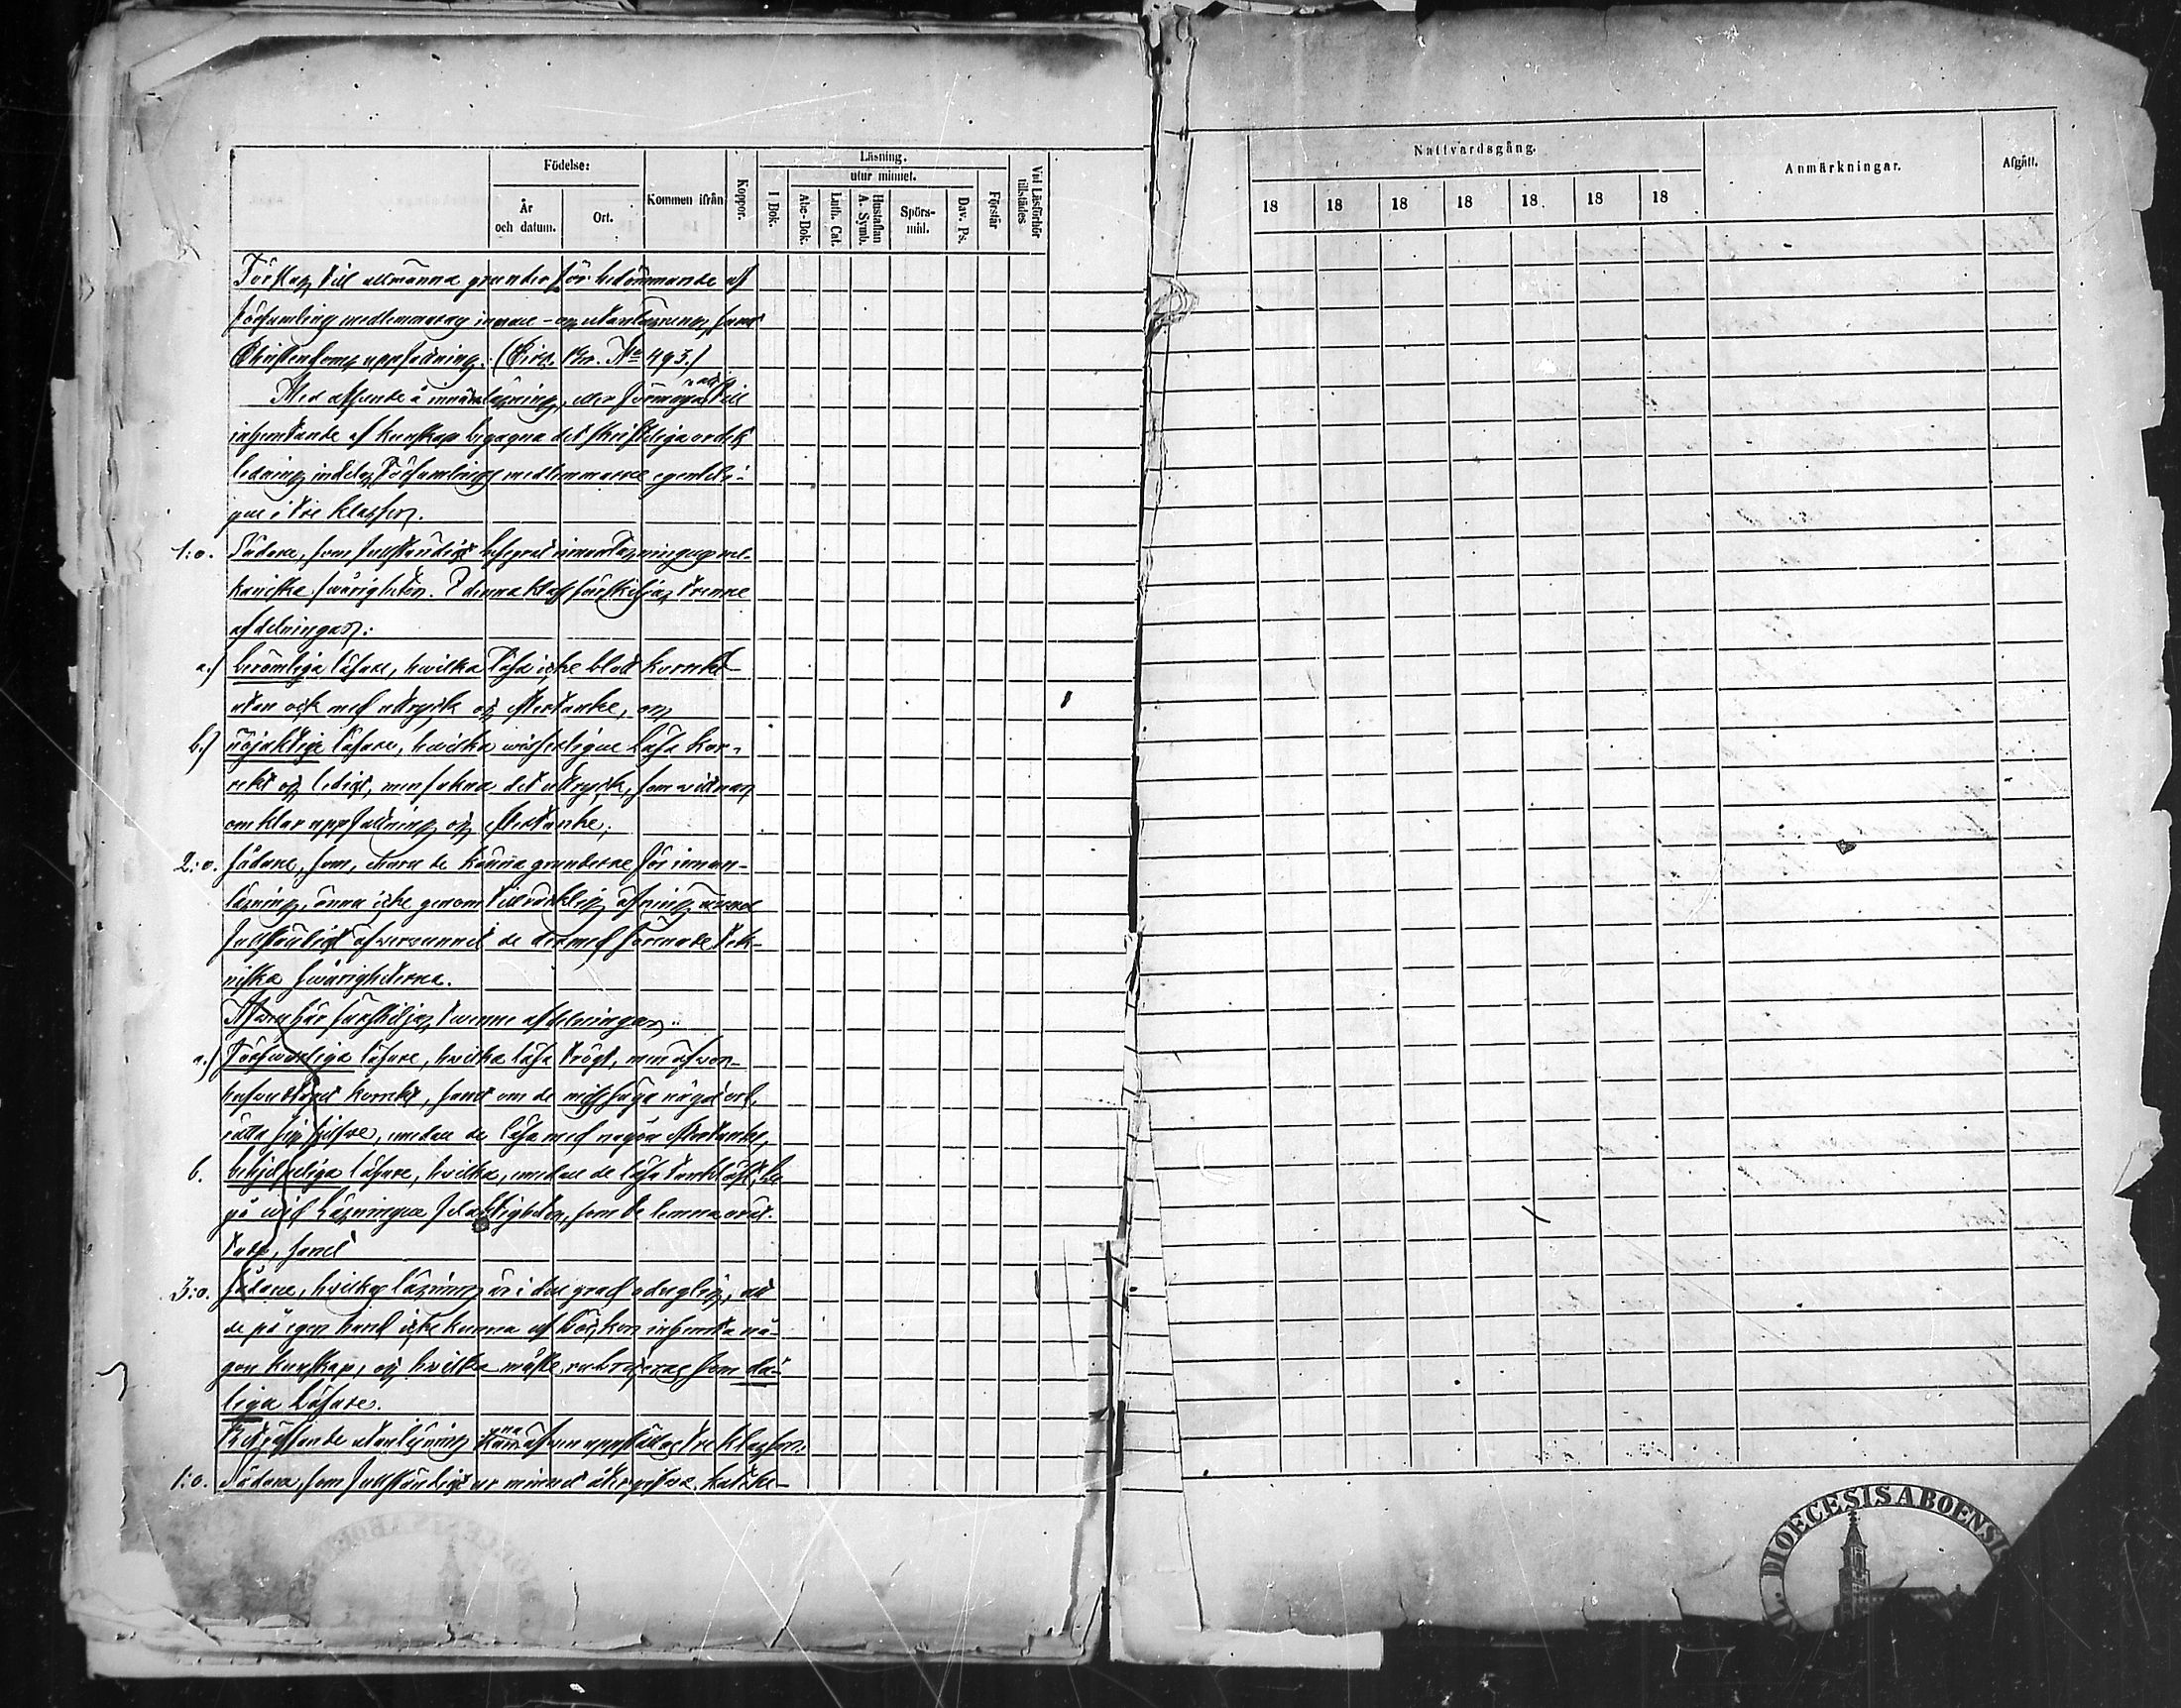 Födelse:
Läsning.
utur minnet.
År och datum.
Ort.
Kommen ifrån
Koppor.
I Bok.
Abc-Bok.
Luth. Cat.
Hustaflan A. Symb.
Spörs-mål.
Dav. Ps.
Förstår
Vid Läsförhör tillstädes
Nattvardsgång.
Anmärkningar.
Afgått.
18 18 18 18 18 18 18
Förslag till allmänna grunder för bedömmande af
församling medlemmarnas innan- och utanläsning samt
Christendoms uppfattning. (Circ. Br. No 493.)
Med afseende å innanläsning, eller förmåga att till
inhemtande af kunskap begagna det skriftliga ordets
ledning indelas Församlings medlemmarne egentli-
gen i tre klasser.
1:o. Sådane, som fullständigt besegrat innanläsningens me-
kaniska svårigheter. I denna klass särskiljas tvenne
afdelningar:
a.) berömliga läsare, hvilka läsa icke blott korrekt
utan ock med uttryck och eftertanke, och
b.) nöjaktige läsare, hvilka visserligen läsa kor-
rekt och ledigt, men sakna det uttryck, som vittnar
om klar uppfattning och eftertanke;
2:o. sådane, som, ehuru de känna grunderne för innan-
läsning, ännu icke genom tillräcklig öfning
fullständigt öfvervunnit de dermed förenade tek-
niska svårigheterna.
Äfven här särskiljas tvenne afdelningar:
a.) Försvarliga läsare, hvilka läsa trögt, men
korrekt, samt om de misssäga något ord,
rätta sig sjelfve, emedan de läsa med någon eftertanke,
b. behjelpeliga läsare, hvilka, emedan de läsa tanklöst, be-
gå vid läsningen felaktigheter, som de lemna orät-
tade, samt
3:o. sådane, hvilkas läsning är i den grad oduglig, att
de på egen hand icke kunna af böcker inhemta nå-
gon kunskap, och hvilka måste rubriceras som då-
liga läsare.
Beträffande utanläsning kunna äfven uppställas tre klasser:
1:o. Sådane, som fullständigt ur minnet återgifva katike-
DIOECESIS ABOENSI